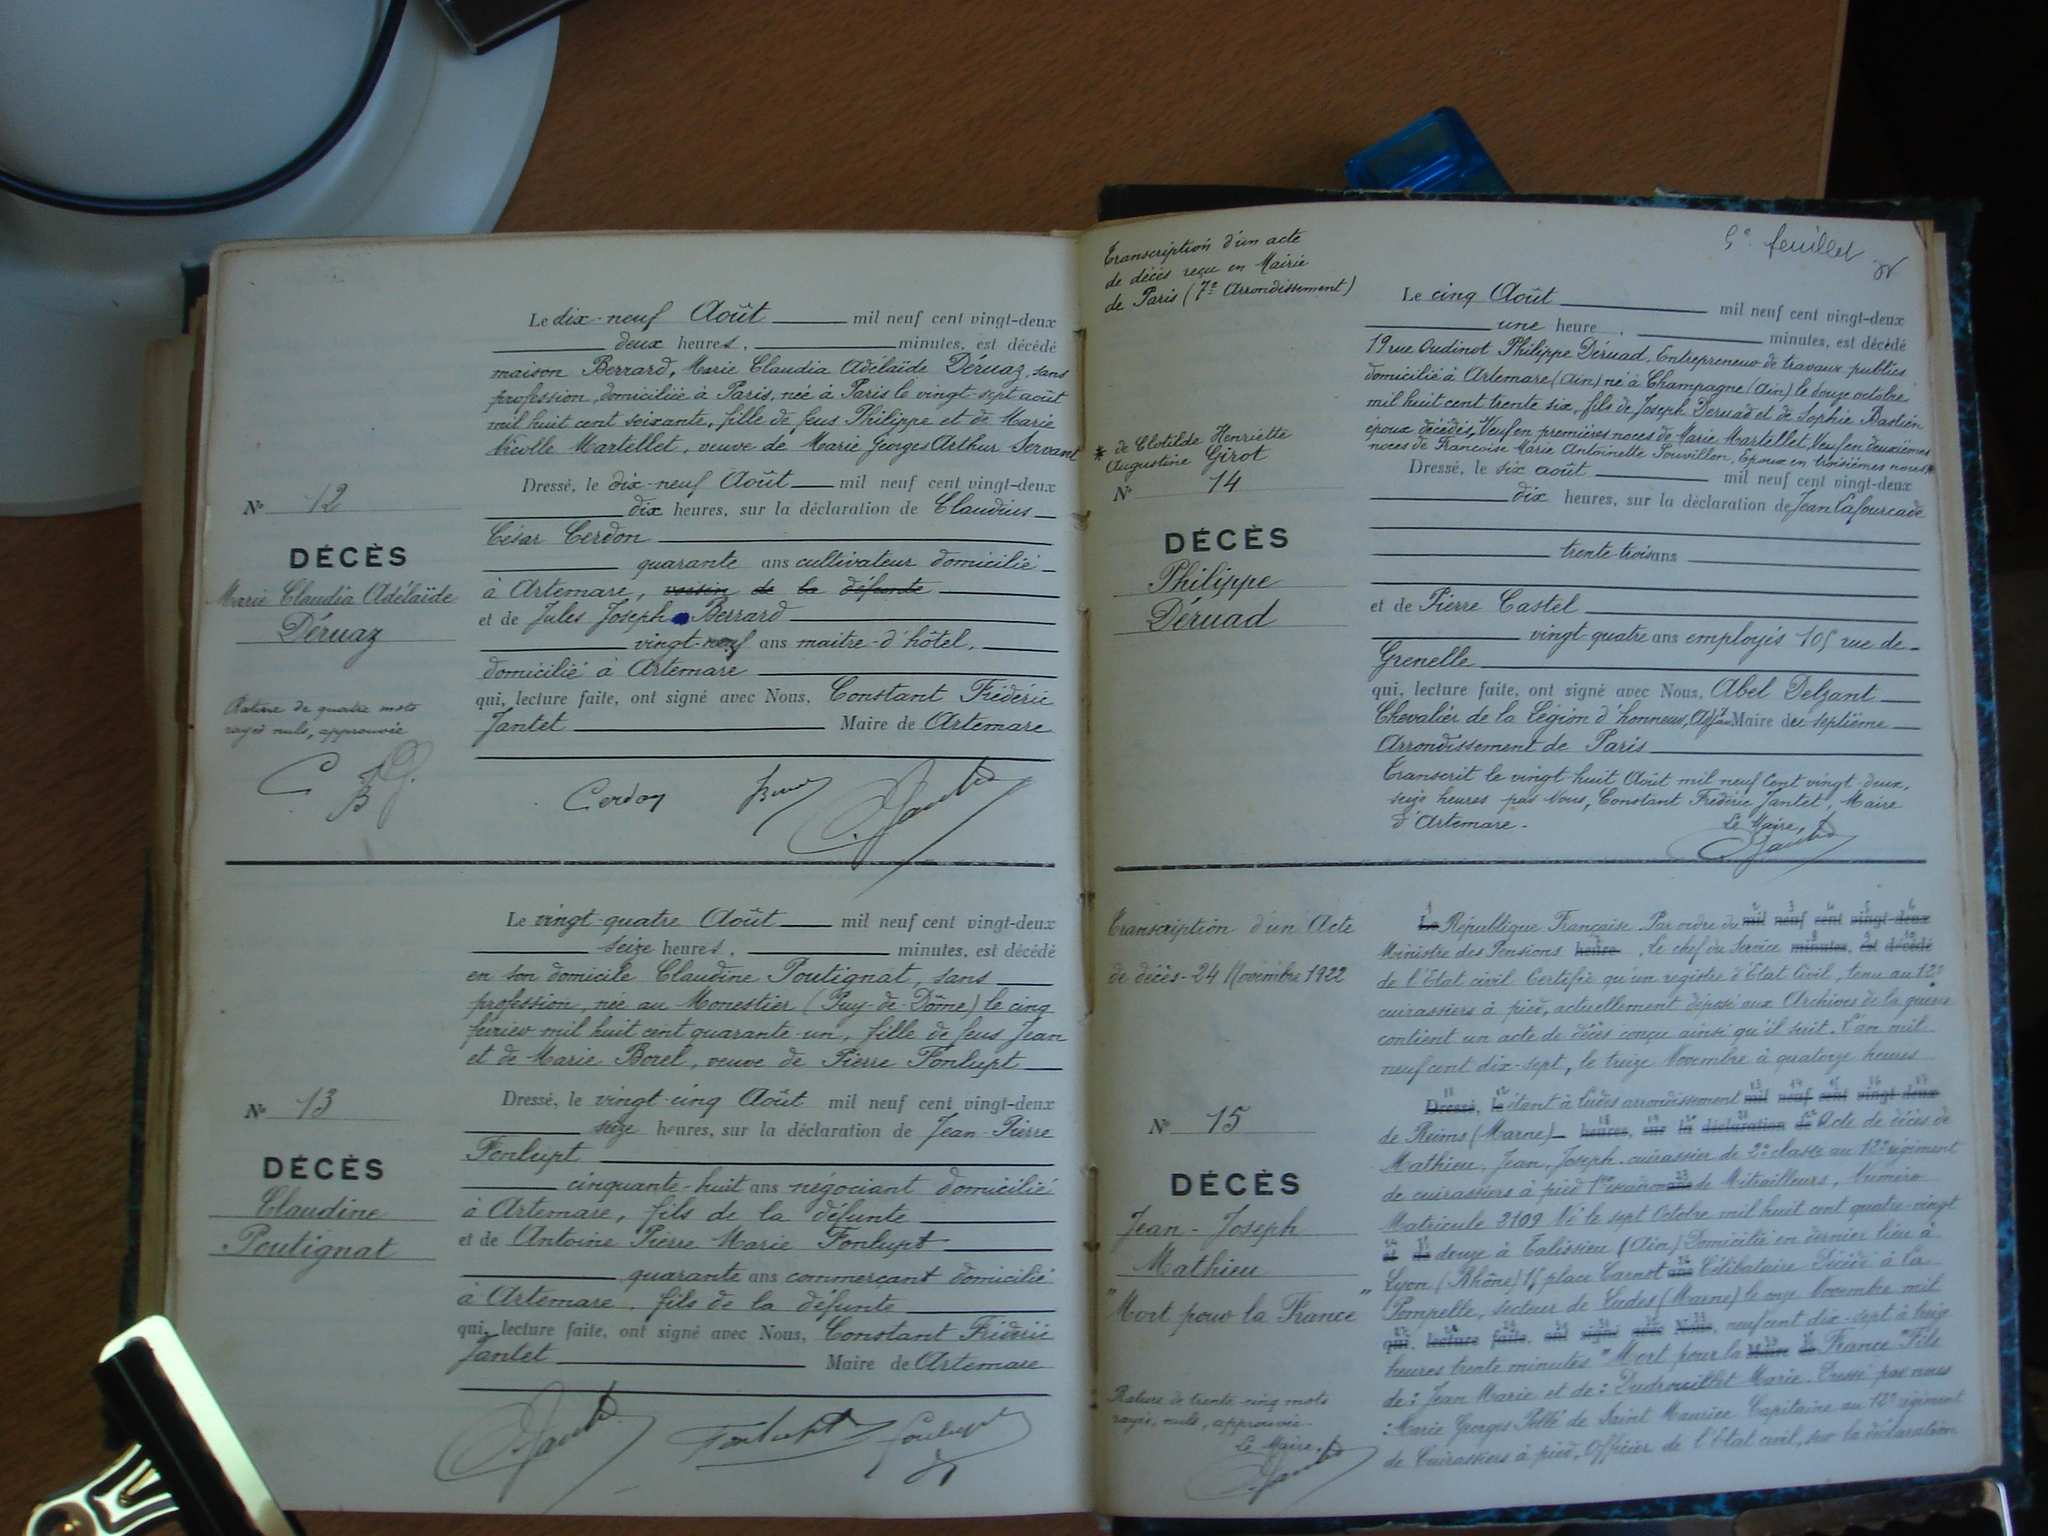 Le dix-neuf Août mil neuf cent vingt-deux
deux heures, minutes, est décédé
maison Berrard, Marie Claudia Adélaïde Déruaz, sans
profession, domiciliée à Paris, née à Paris le vingt-sept août
mil huit cent soixante, fille de feus Philippe et de Marie
Nicolle Martellet, veuve de Marie Georges Arthur Servant
Dressé, le dix-neuf Août mil neuf cent vingt-deux
Nº 12
dix heures, sur la déclaration de Claudius
César Cerdon
DÉCÈS
quarante ans cultivateur domicilié
Marie Claudia Adélaïde
à Artemare, voisin de la défunte
Déruaz
et de Jules Joseph Berrard
vingt-neuf ans maitre-d'hôtel,
domicilié à Artemare
Rature de quatre mots
rayés nuls, approuvée
qui, lecture faite, ont signé avec Nous, Constant Frédéric
Jantet Maire de Artemare
Cerdon
Le vingt-quatre Août mil neuf cent vingt-deux
seize heures, minutes, est décédé
en son domicile Claudine Poutignat, sans
profession, née au Monestier (Puy-de-Dôme) le cinq
février mil huit cent quarante-un, fille de feus Jean
et de Marie Borel, veuve de Pierre Fonlupt
Dressé, le vingt-cinq Août mil neuf cent vingt-deux
Nº 13
seize heures, sur la déclaration de Jean-Pierre
Fonlupt
DÉCÈS
cinquante-huit ans négociant domicilié
Claudine
à Artemare, fils de la défunte
Poutignat
et de Antoine Pierre Marie Fonlupt
quarante ans commerçant domicilié
à Artemare, fils de la défunte
qui, lecture faite, ont signé avec Nous, Constant Frédéric
Jantet Maire de Artemare
Jantet Fonlupt Fonlupt
5e feuillet
Transcription d'un acte
de décès reçu en Mairie
de Paris (7e Arrondissement)
Le cinq Août mil neuf cent vingt-deux
une heure, minutes, est décédé
19 rue Oudinot Philippe Déruad, Entrepreneur de travaux publics
domicilié à Artemare (Ain) né à Champagne (Ain) le douze octobre
mil huit cent trente six, fils de Joseph Déruad et de Sophie Bastien
époux décédés, Veuf en premières noces de Marie Martellet, Veuf en deuxièmes
noces de Francoise Marie Antoinette Jouvillon, Epoux en troisièmes noces *
* de Clotilde Henriette
Augustine Girot
Dressé, le six août mil neuf cent vingt-deux
Nº 14
dix heures, sur la déclaration de Jean Lafourcade
DÉCÈS
trente-trois ans
Philippe
Déruad
et de Pierre Castel
vingt-quatre ans employés 105 rue de
Grenelle
qui, lecture faite, ont signé avec Nous, Abel Delzant
Chevalier de la Légion d'honneur, Adj. Maire du septième
Arrondissement de Paris
Transcrit le vingt-huit Août mil neuf cent vingt-deux,
seize heures par Nous, Constant Frédéric Jantet, Maire
d'Artemare. Le Maire,
Jantet
Transcription d'un Acte
de décès - 24 Novembre 1922
Le République Française Par ordre du mil neuf cent vingt-deux
Ministre des Pensions heures, Le chef du Service minutes, est décédé
de l'Etat civil Certifie qu'un registre d'Etat Civil, tenu au 12e
cuirassiers à pied, actuellement déposé aux Archives de la guerre
contient un acte de décès conçu ainsi qu'il suit. L'an mil
neuf cent dix-sept, le treize Novembre à quatorze heures
Dressé, le étant à Ludes arrondissement mil neuf cent vingt-deux
Nº 15
de Reims (Marne) heures, sur la déclaration de Acte de décès de
Mathieu, Jean, Joseph, cuirassier de 2e classe au 12e régiment
DÉCÈS
de cuirassiers à pied 1er escadron ans de Mitrailleurs, Numéro
Jean-Joseph
Matricule 2109 Né le sept Octobre mil huit cent quatre-vingt
et de douze à Talissieu (Ain) Domicilié en dernier lieu à
Mathieu
Lyon (Rhône) place Carnot ans Célibataire Décédé à La
"Mort pour la France"
Pompelle, secteur de Ludes (Marne) le onze Novembre mil
qui, lecture faite, ont signé avec Nous, neuf cent dix-sept à treize
heures trente minutes "Mort pour la Maire de France" Fils
de : Jean Marie et de : Dudrouillet Marie. Dressé par nous
Rature de trente-cinq mots
rayés, nuls, approuvée.
: Marie Georges de Saint Maurice Capitaine au 12e régiment
Le Maire,
Jantet
de Cuirassiers à pied, Officier de l'Etat civil, sur la déclaration